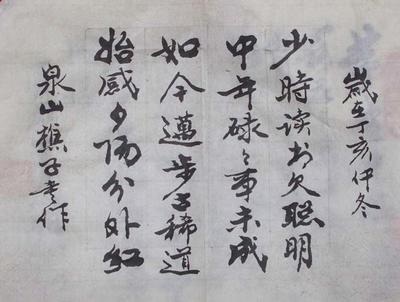 歲在丁亥仲冬
少時读书欠聪明
中年碌々事未成
如今邁步古稀道
始感夕陽分外红
泉山樵子作